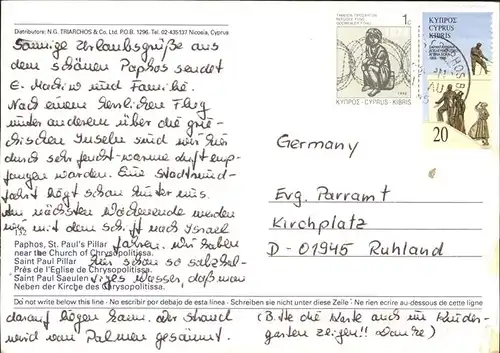 Distributors: N.G. TRIARCHOS & Co. Ltd. P.O.B. 1296. Tel. 02-435137 Nicosia, Cyprus
Sonnige Urlaubsgrüße aus
dem schönen Paphos sendet
E. und Familie.
Nach einem herrlichen Flug
unter anderem über die grie-
chischen Inseln sind wir hier
durch sehr feucht-warme Luft emp-
fangen worden. Eine Stadtrund-
fahrt liegt schon hinter uns.
Am nächsten Wochenende werden
wir mit dem Schiff nach Israel
fahren. Wir haben
hier schon so salzhal-
tiges Wasser, daß man
darauf liegen kann. Der Strand
wird von Palmen gesäumt.
152
Paphos, St. Paul's Pillar
near the Church of Chrysopolitissa.
Saint Paul Pillar
Près de l'Eglise de Chrysopolitissa.
Saint Paul Saeulen
Neben der Kirche des Chrysopolitissa.
Do not write below this line - No escribir por debajo de esta linea - Schreiben sie nicht unter diese Zeile - Ne rien ecrire au-dessous de cette ligne
1c
ΚΥΠΡΟΣ · CYPRUS · KIBRIS
ΚΥΠΡΟΣ
CYPRUS
KIBRIS
20
Germany
Evg. Pfarramt
Kirchplatz
D - 01945 Ruhland
(Bitte die Karte auch im Kinder-
garten zeigen!! Danke)